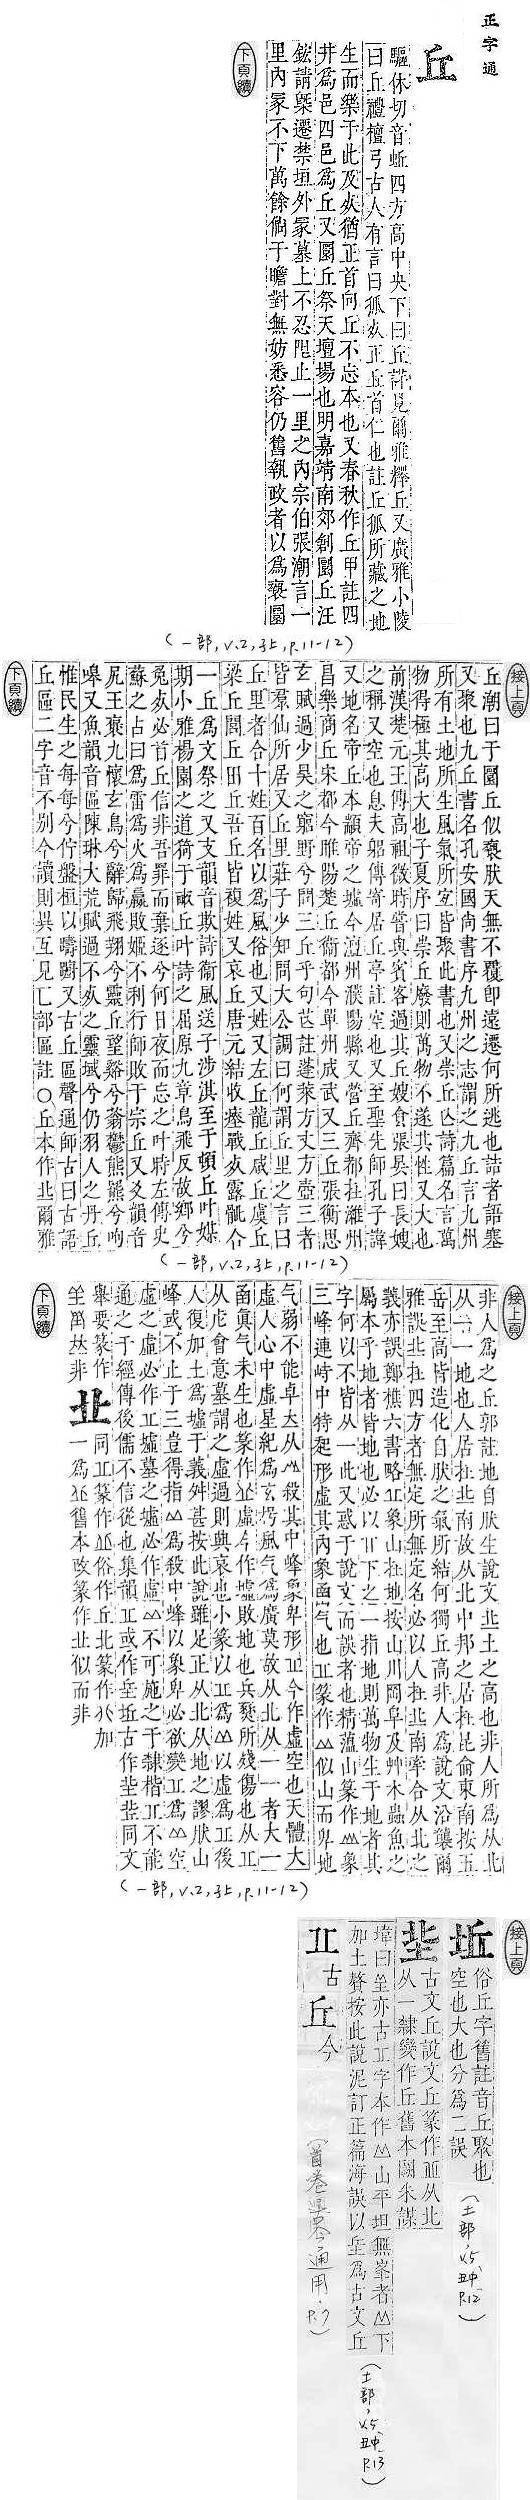 正字通
丘
驅休切音蚯四方高中央下曰丘詳見爾雅釋丘又廣雅小陵
曰丘禮檀弓古人有言曰狐死正丘首仁也註丘狐所藏之地
生而樂于此及死猶正首向丘不忘本也又春秋作丘甲註四
井爲邑四邑爲丘又圜丘祭天壇場也明嘉靖南郊創圜丘汪
鋐請槩遷禁垣外冢墓上不忍阻止一里之內宗伯張潮言一
里內冢不下萬餘倘于瞻對無妨悉容仍舊執政者以爲褻圜
下頁續
(一部,v.2,子上,p.11-12)
接上頁
丘潮曰于圜丘似褻肰天無不覆卽遠遷何所逃也詰者語塞
又聚也九丘書名孔安國尚書序九州之志謂之九丘言九州
所有土地所生風氣所宜皆聚此書也又崇丘亾詩篇名言萬
物得極其高大也子夏序曰崇丘廢則萬物不遂其性又大也
前漢楚元王傳高祖微時嘗與賓客過其丘嫂食張晏曰長嫂
之稱又空也息夫躬傳寄居丘亭註空也又至聖先師孔子諱
又地名帝丘本顓帝之墟今澶州濮陽縣又營丘齊都在濰州
昌樂商丘宋都今睢陽楚丘衞都今單州成武又三丘張衡思
玄賦過少昊之窮野兮問三丘乎句芒註蓬萊方丈方壺三者
皆羣仙所居又丘里莊子少知問大公調曰何謂丘里之言曰
丘里者合十姓百名以爲風俗也又姓又左丘龍丘咸丘虞丘
梁丘閭丘田丘吾丘皆複姓又哀丘唐元結收瘞戰死露骴合
一丘爲文祭之又支韻音欺詩衞風送子涉淇至于頓丘叶媒
期小雅楊園之道猗于畝丘叶詩之屈原九章鳥飛反故鄉兮
兔死必首丘信非吾罪而棄逐兮何日夜而忘之叶時左傳史
蘇之占曰爲雷爲火爲嬴敗姬不利行師敗于宗丘又爻韻音
尻王褒九懷玄鳥兮辭歸飛翔兮靈丘望谿兮蓊鬱熊羆兮呴
嘷又魚韻音區陳琳大荒賦過不死之靈域兮仍羽人之丹丘
惟民生之每每兮佇盤桓以躊躇又古丘區聲通師古曰古語
丘區二字音不別今讀則異互見匚部區註○丘本作北爾雅
下頁續
(一部,v.2,子上,p.11-12)
接上頁
非人爲之丘郭註地自肰生說文北土之高也非人所爲从北
从一一地也人居在北南故从北中邦之居在昆侖東南按五
岳至高皆造化自肰之氣所結何獨丘高非人爲說文沿襲爾
雅誤北在四方者無定所無定名必以人在北南牽合从北之
義亦誤鄭樵六書略丘象山在地按山川岡阜及艸木蟲魚之
屬本乎地者皆地也必以丌下之一指地則萬物生于地者其
字何以不皆从一此又惑于說文而誤者也精薀山篆作山象
三峰連峙中特起形虛其內象函气也丘篆作似山而卑地
气弱不能卓夳从殺其中峰象卑形丘今作虛空也天體大
虛人心中虛星紀爲玄枵風气爲廣莫故从北从一一者大一
函眞气未生也篆作虛今作墟敗地也兵燹所殘傷也从丘
从虍會意墓謂之虛過則興哀也小篆以丘爲以虛爲丘後
人復加土爲墟于義舛甚按此說雖足正从北从地之謬肰山
峰或不止于三豈得指爲殺中峰以象卑必欲變丘爲空
虛之虛必作丘墟墓之墟必作虛不可施之于隸楷丘不能
通之于經傳後儒不信從也集韻丘或作坵古作丠同文
舉要篆作同丘篆作俗作丘北篆作加
一爲舊本改篆作似而非
下頁續
(一部,v.2,子上,p.11-12)
接上頁
坵
俗丘字舊註音丘聚也
空也大也分爲二誤
(土部,v.5,丑中,p.12)
古文丘說文丘篆作从北
从一隸變作丘舊本闕朱謀
㙔曰亦古丘字本作山平坦無峯者下
加土贅按此說泥訂正篇海誤以爲古文丘
(土部,v.5,丑中,p.13)
古丘今
(首卷,古今通用,p.7)